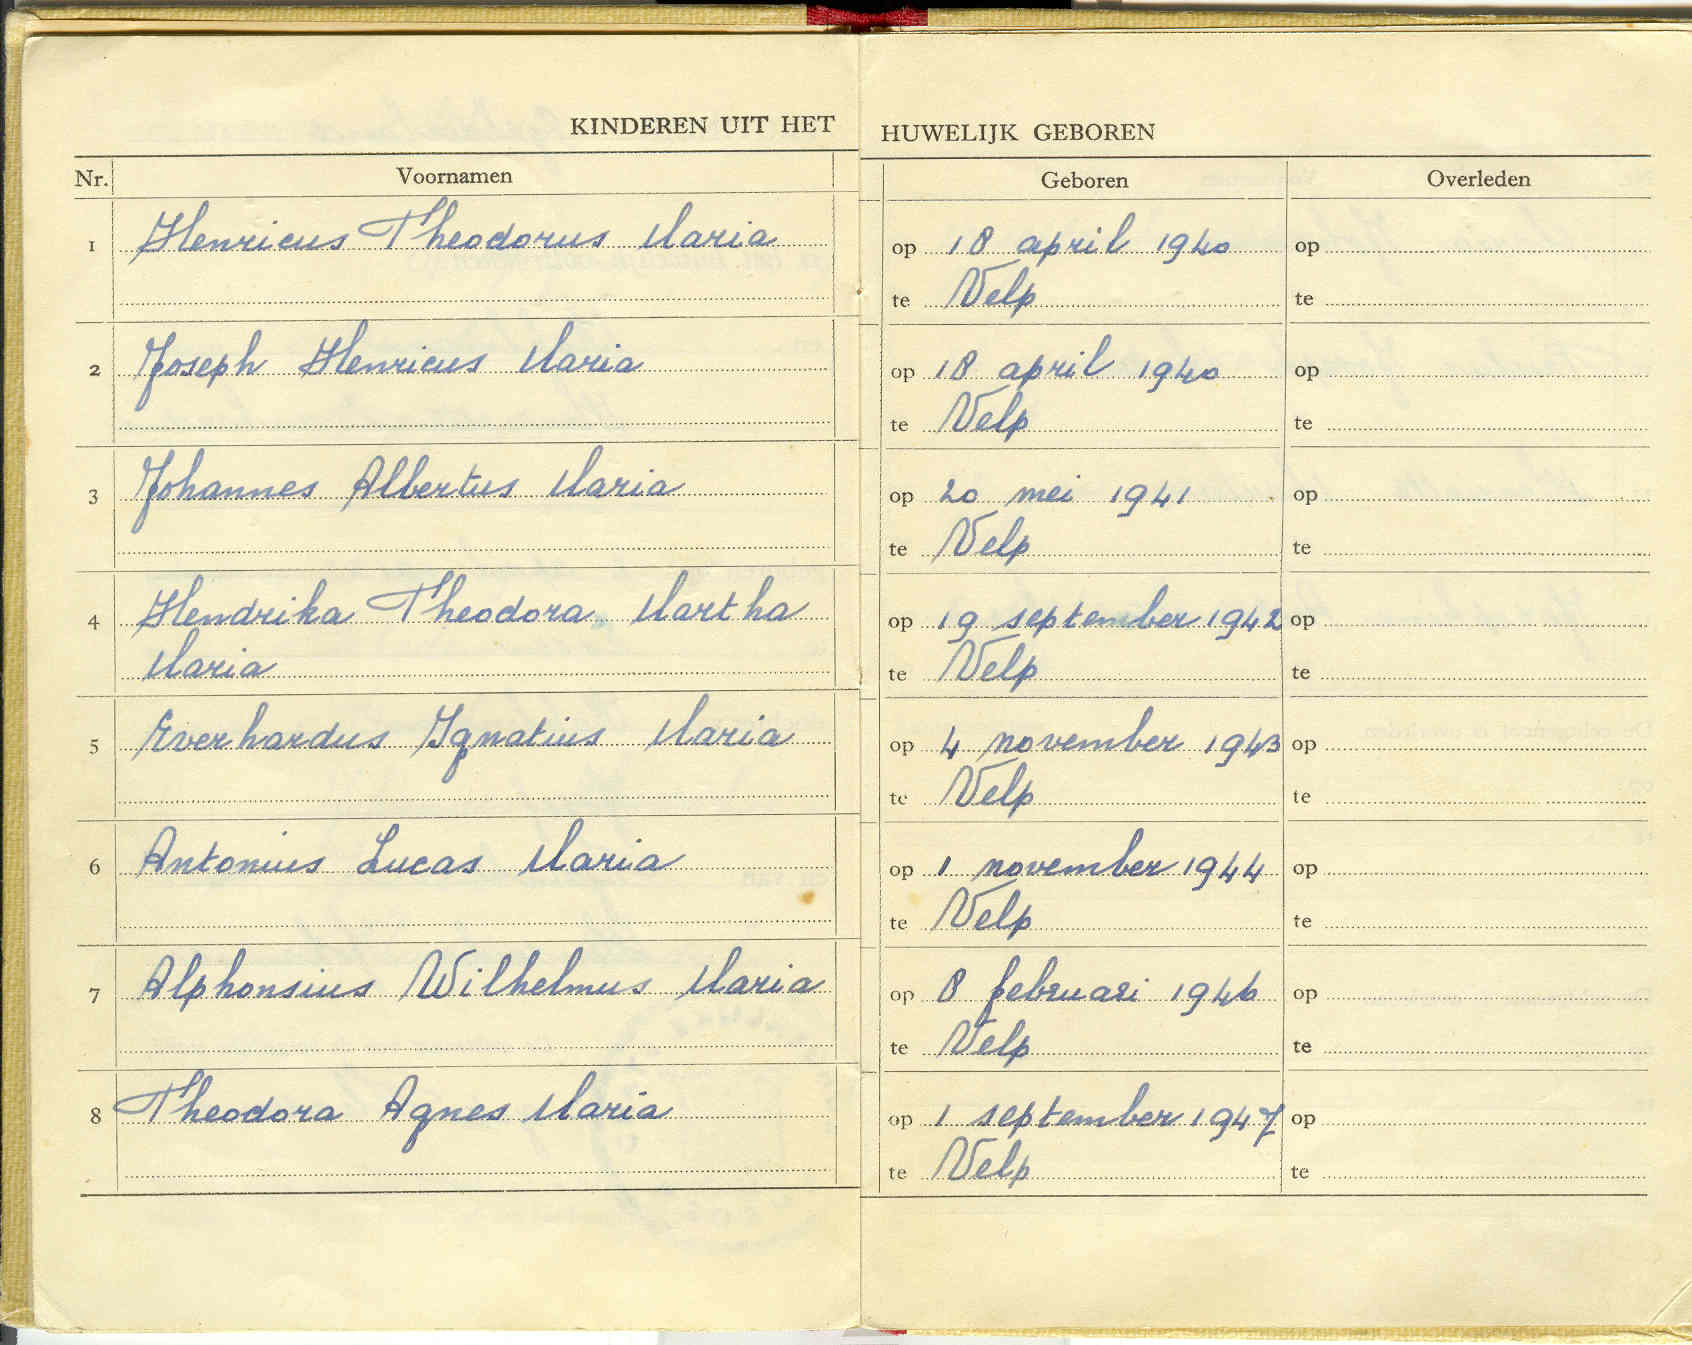 KINDEREN UIT HET HUWELIJK GEBOREN
Nr. Voornamen Geboren Overleden
1 Henricus Theodorus Maria op 18 april 1940 op
te Velp te
2 Joseph Henricus Maria op 18 april 1940 op
te Velp te
3 Johannes Albertus Maria op 20 mei 1941 op
te Velp te
4 Hendrika Theodora Martha op 19 september 1942 op
Maria te Velp te
5 Everhardus Ignatius Maria op 4 november 1943 op
te Velp te
6 Antonius Lucas Maria op 1 november 1944 op
te Velp te
7 Alphonsius Wilhelmus Maria op 8 februari 1946 op
te Velp te
8 Theodora Agnes Maria op 1 september 1947 op
te Velp te